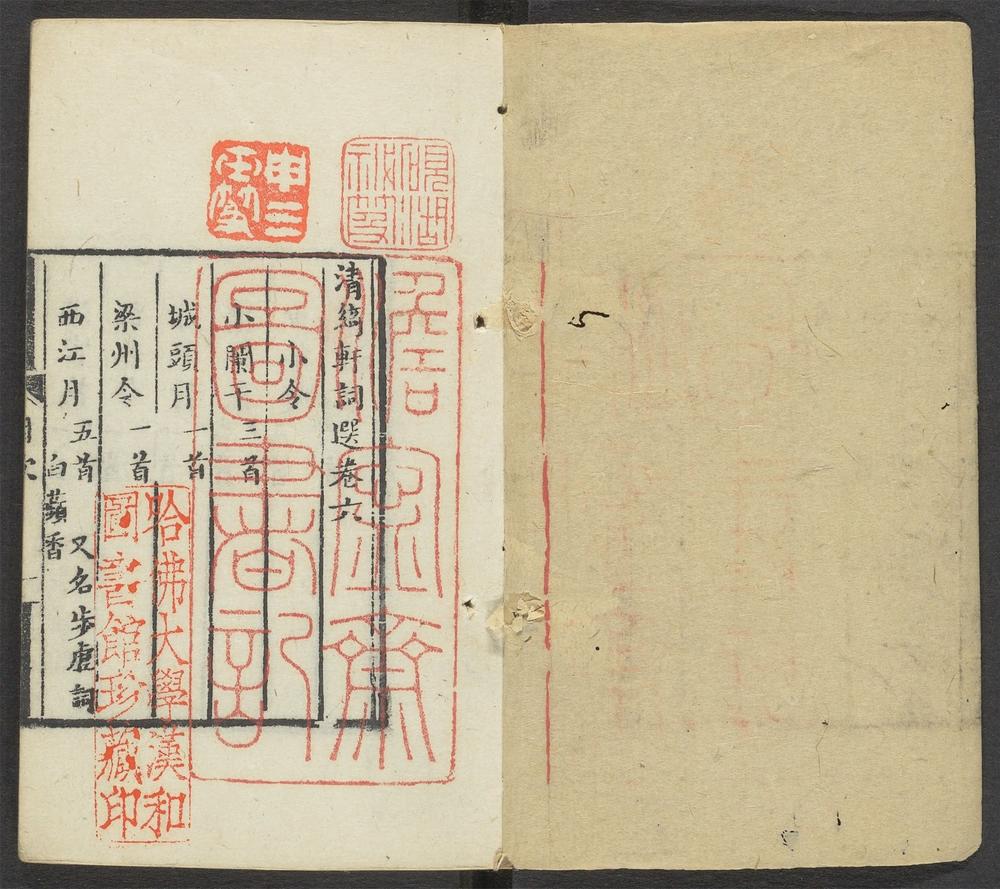 清綺軒詞選卷六
小令
小闌干 三首
城頭月 一首
梁州令 一首
西江月 五首 又名步虛詞
白蘋香
目次
圖書記
哈佛大學漢和
圖書館珍藏印
5